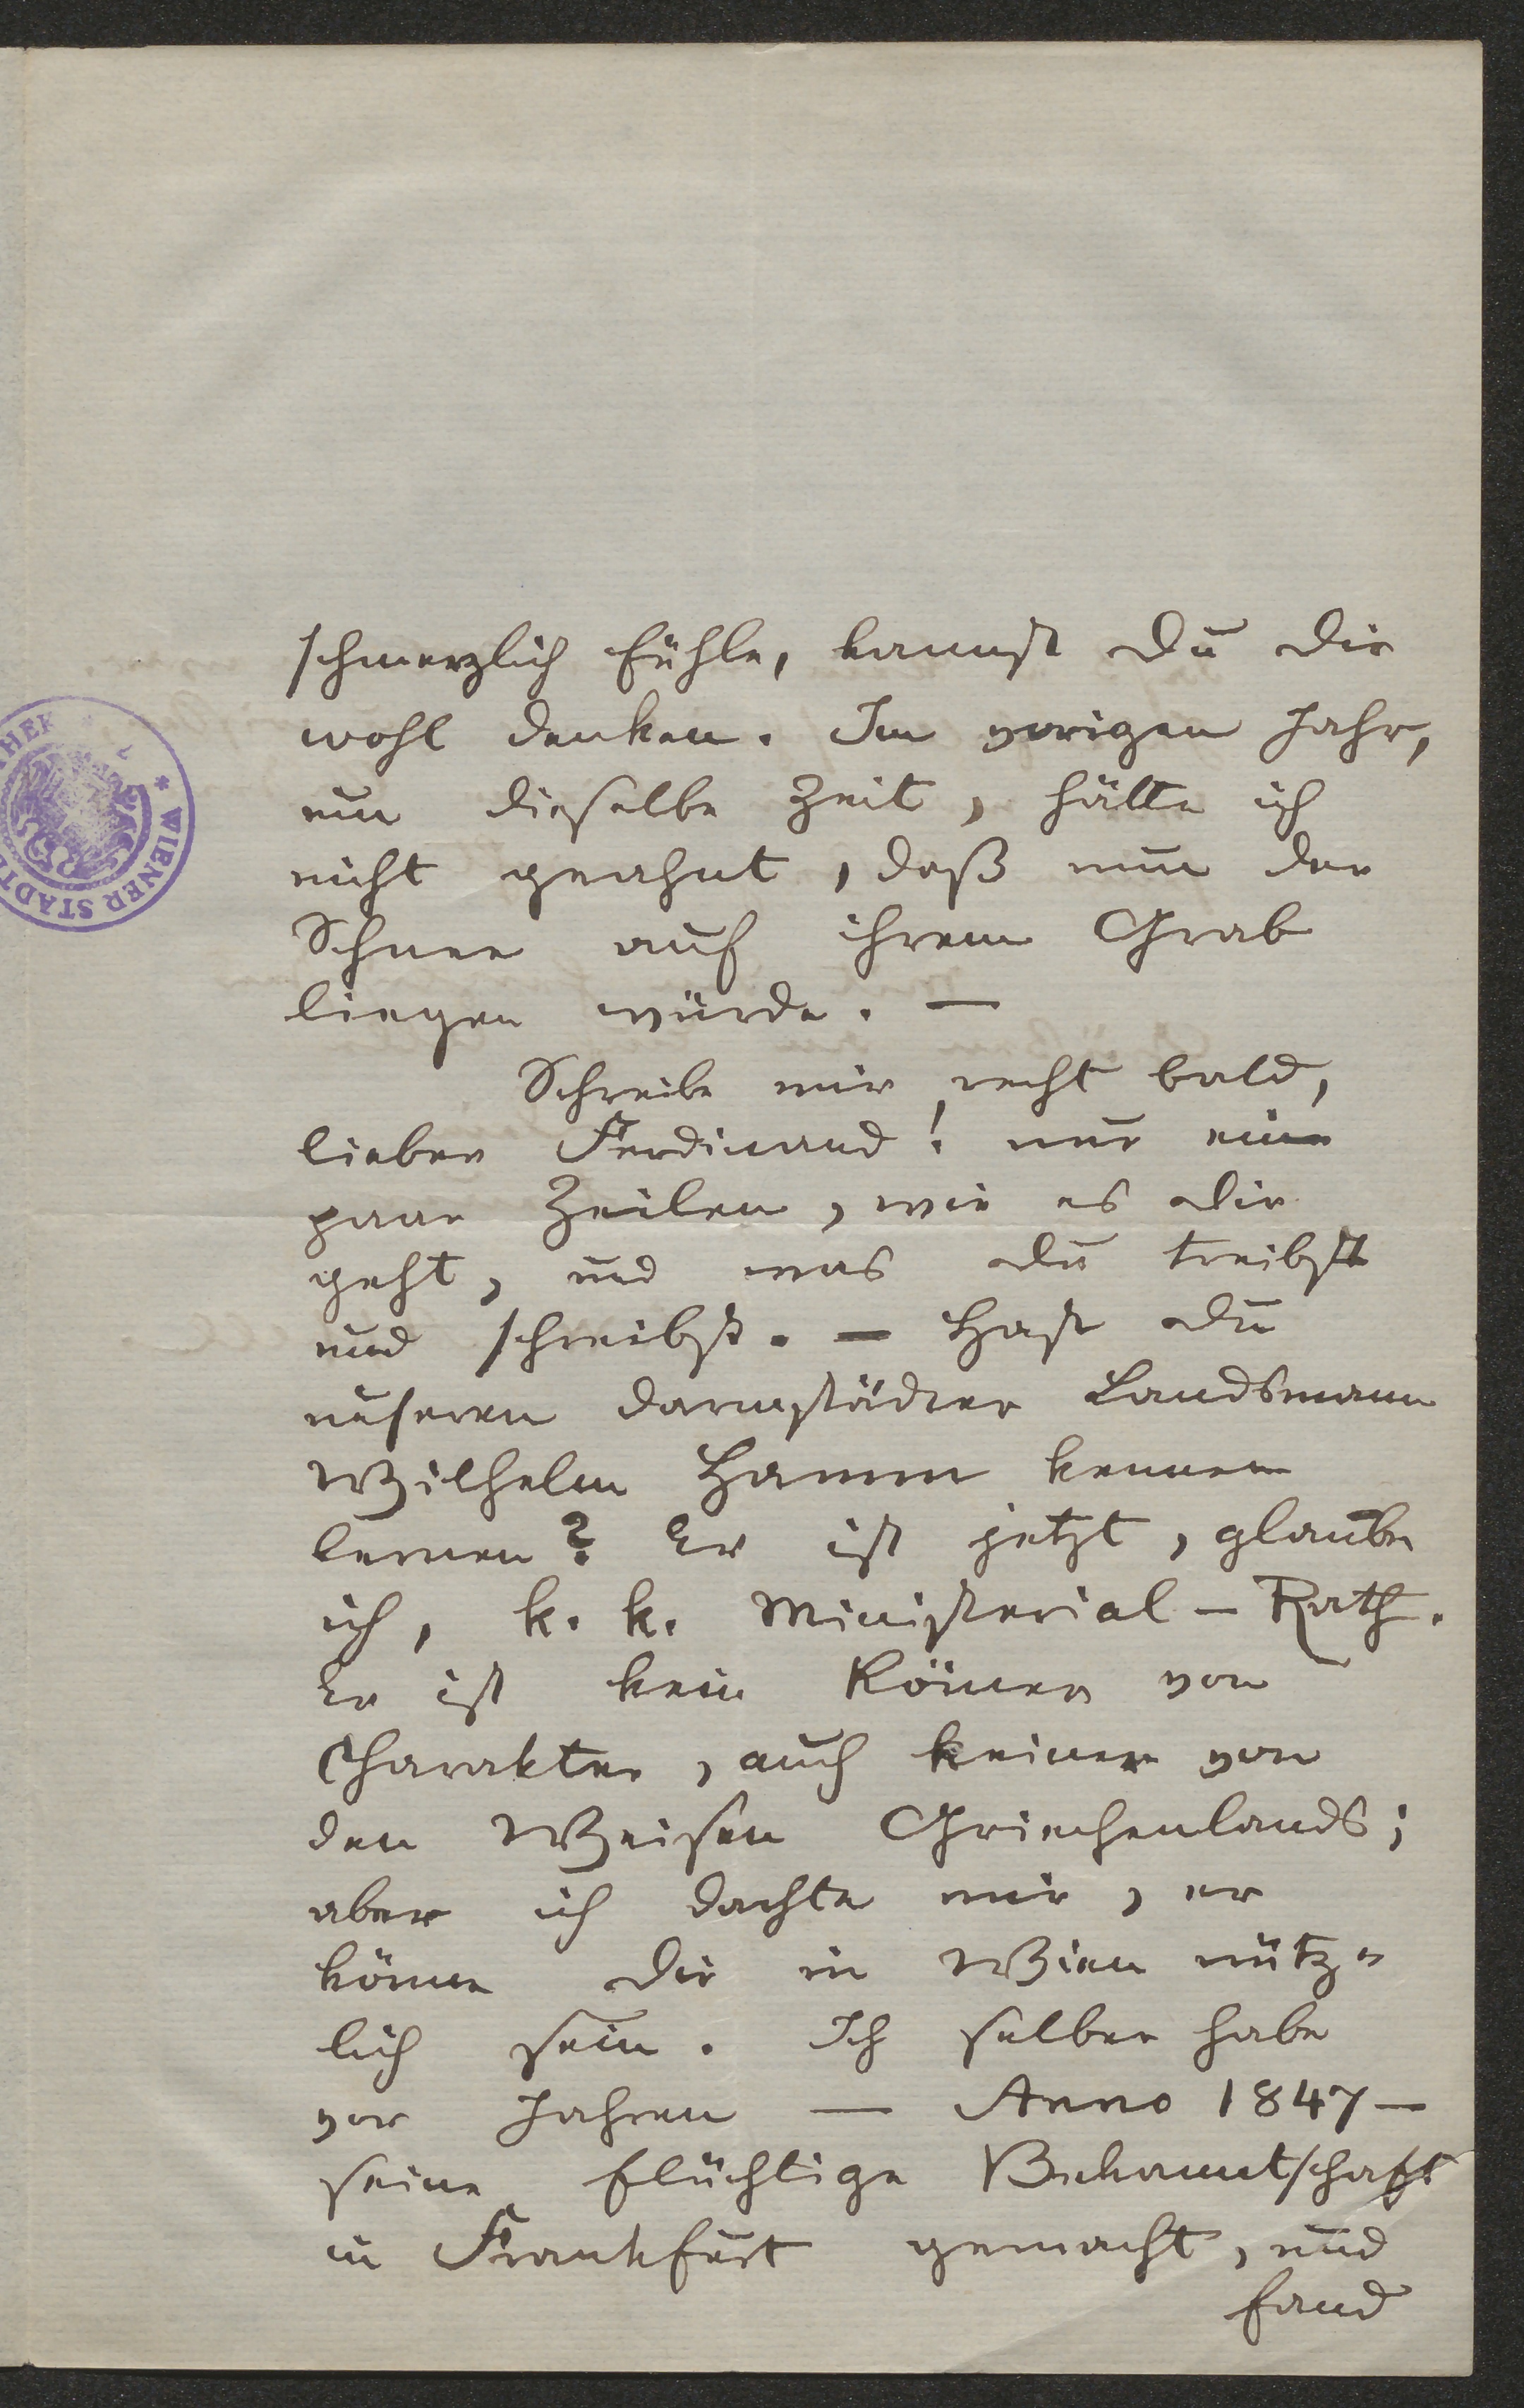 schmerzlich fühle, kannst du dir
wohl denken. Im vorigen Jahr,
um dieselbe Zeit, hätte ich
nicht geahnt, daß nun der
Schnee auf ihrem Grab
liegen würde. —
Schreibe mir recht bald,
lieber Ferdinand! nur ein
paar Zeilen, wie es dir
geht, und was du treibst
und schreibst. — Hast du
unseren darmstädter Landsmann
Wilhelm Hamm kennen
lernen? Er ist jetzt, glaube
ich, k. k. Ministerial-Rath.
Er ist kein Römer von
Charakter, auch keiner von
den Weisen Griechenlands;
aber ich dachte mir, er
könne dir in Wien nütz-
lich sein. Ich selber habe
vor Jahren — Anno 1847 —
seine flüchtige Bekanntschaft
in Frankfurt gemacht, und
fand
WIENER STADT